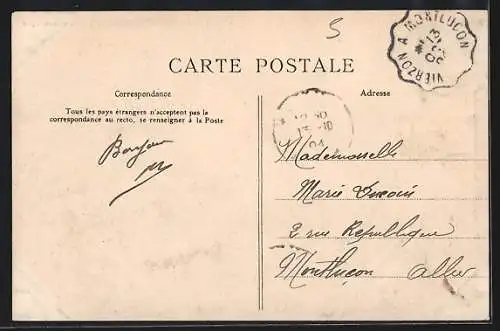 5
VIERZON A MONTLUÇON
13
CARTE POSTALE
Correspondance
Adresse
Tous les pays étrangers n'acceptent pas la
correspondance au recto, se renseigner à la Poste
Bonjour
Mademoiselle
Marie
2 rue Republique
Montluçon Allier